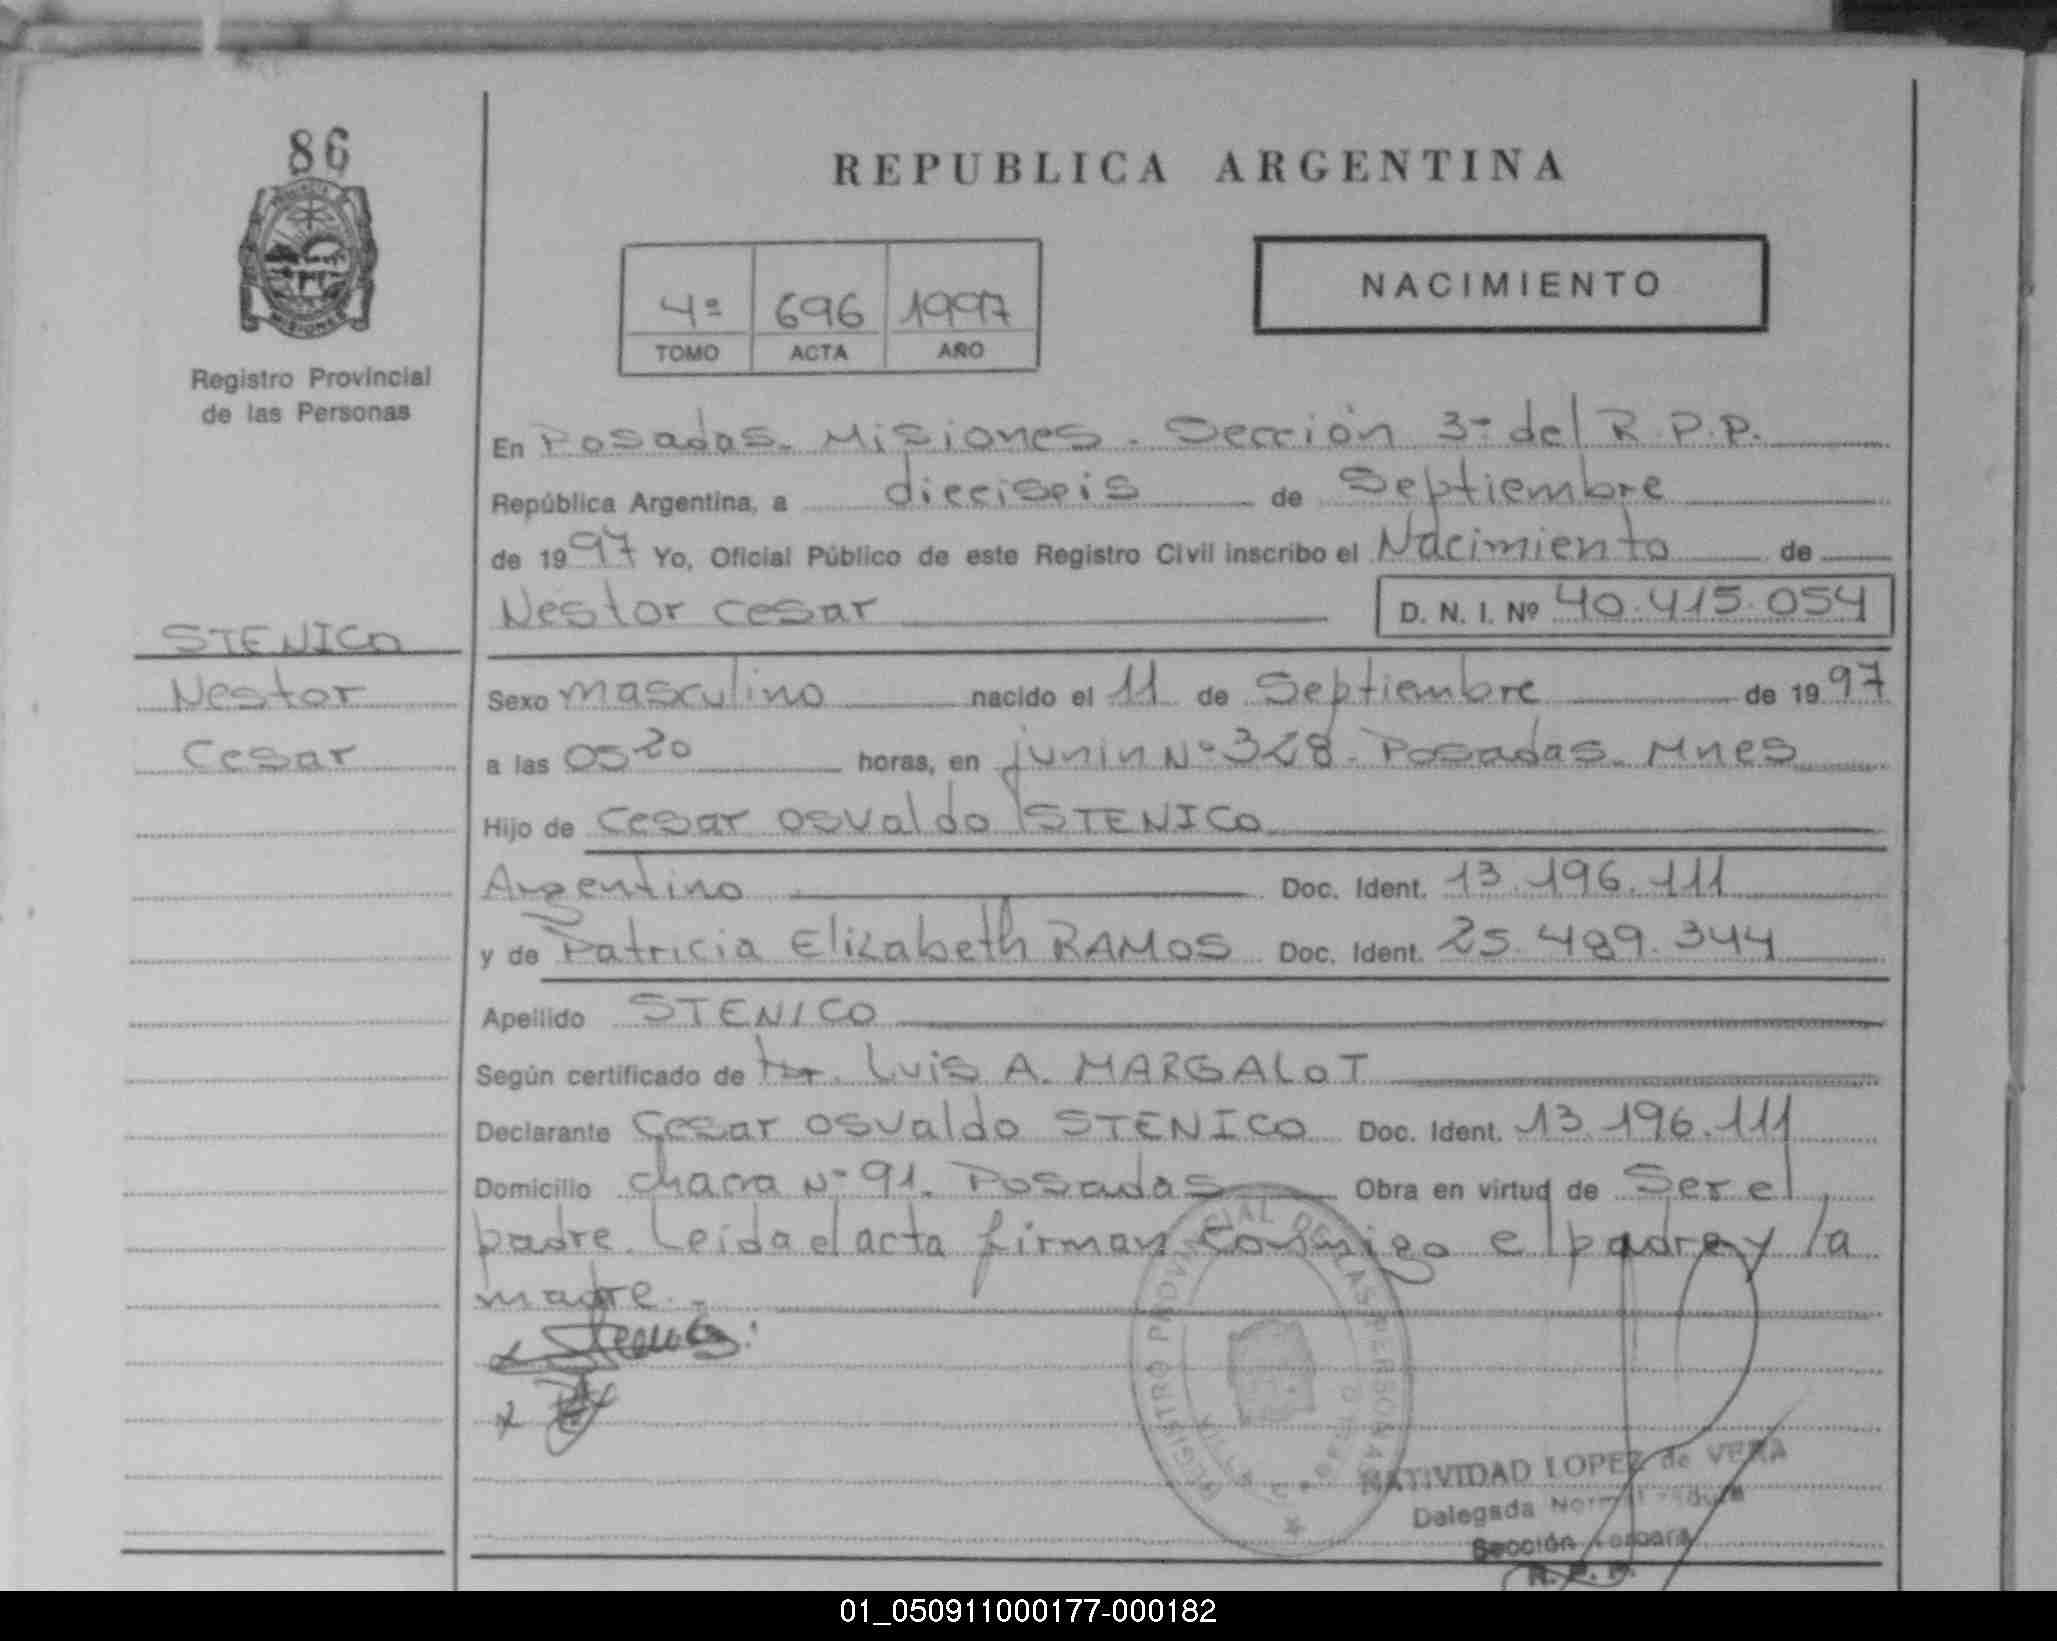 86
MISIONES
Registro Provincial
de las Personas
STENICO
Nestor
Cesar
REPUBLICA ARGENTINA
4º 696 1997
TOMO ACTA AÑO
NACIMIENTO
En Posadas. Misiones. Sección 3ª del R.P.P.
República Argentina, a dieciseis de Septiembre
de 1997 Yo, Oficial Público de este Registro Civil inscribo el Nacimiento de
Nestor Cesar D. N. I. Nº 40.415.054
Sexo masculino nacido el 11 de Septiembre de 1997
a las 05 20 horas, en junin Nº 328. Posadas. Mnes
Hijo de Cesar Osvaldo STENICO
Argentino Doc. Ident. 13.196.111
y de Patricia Elizabeth RAMOS Doc. Ident. 25.489.344
Apellido STENICO
Según certificado de Luis A. MARGALOT
Declarante Cesar Osvaldo STENICO Doc. Ident. 13.196.111
Domicilio chacra Nº 91. Posadas Obra en virtud de Ser el
padre. Leida el acta firman conmigo el padre y la
madre.-
REGISTRO PROVINCIAL DE LAS PERSONAS
NATIVIDAD LOPEZ de VERA
Delegada
Sección Tercera
R. P. P.
01_050911000177-000182